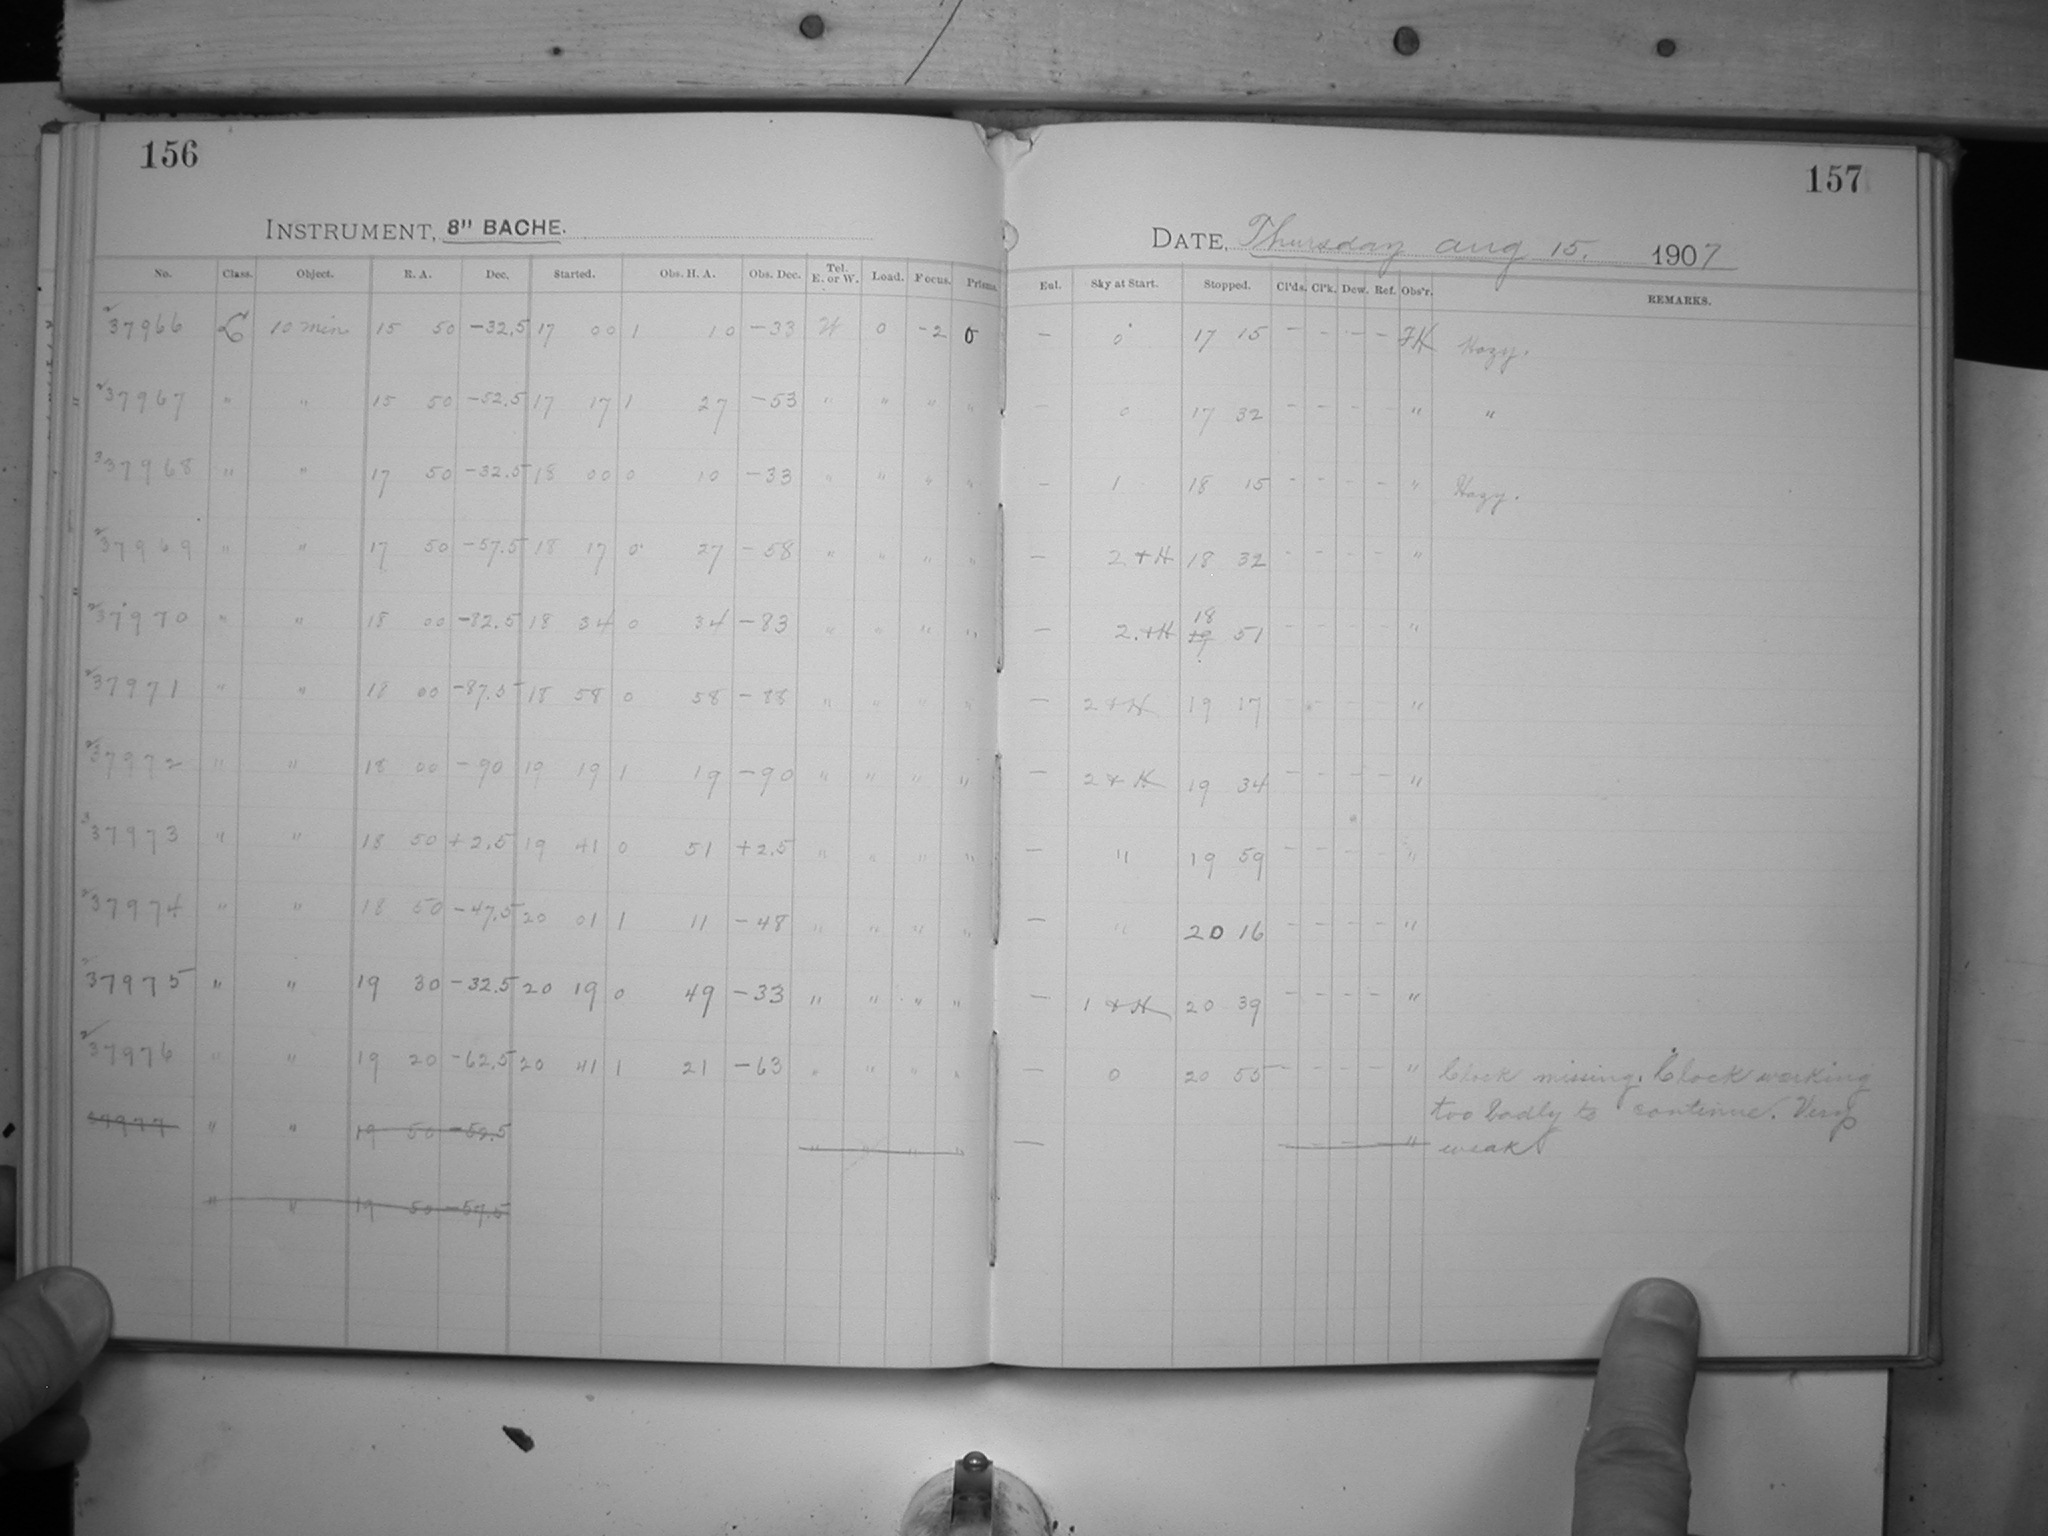 156
157
INSTRUMENT, 8" BACHE.
DATE, Thursday Aug 15. 1907
No. Class. Object. R. A. Dec. Started. Obs. H. A. Obs. Dec. Tel. E. or W. Load. Focus. Prisms. Eul. Sky at Start. Stopped. Cl'ds. Cl'k. Dew. Ref. Obs'r. REMARKS.
37966 L 10 min 15 50 -32.5 17 00 1 10 -33 W 0 -2 0 — 0 17 15 - - - - FK Hazy.
37967 " " 15 50 -52.5 17 17 1 27 -53 " " " " — 0 17 32 - - - - " "
37968 " " 17 50 -32.5 18 00 0 10 -33 " " " " — 1 18 15 - - - - " Hazy.
37969 " " 17 50 -57.5 18 17 0 27 -58 " " " " — 2 + H 18 32 - - - - "
37970 " " 18 00 -82.5 18 34 0 34 -83 " " " " — 2 + H 18 19 51 - - - - "
37971 " " 18 00 -87.5 18 58 0 58 -88 " " " " — 2 + H 19 17 - - - - "
37972 " " 18 00 -90 19 19 1 19 -90 " " " " — 2 + H 19 34 - - - - "
37973 " " 18 50 +2.5 19 41 0 51 +2.5 " " " " — " 19 59 - - - - "
37974 " " 18 50 -47.5 20 01 1 11 -48 " " " " — " 20 16 - - - - "
37975 " " 19 30 -32.5 20 19 0 49 -33 " " " " — 1 + H 20 39 - - - - "
37976 " " 19 20 -62.5 20 41 1 21 -63 " " " " — 0 20 55 - - - - " Clock missing. Clock working
too badly to continue. Very
37977 " " 19 50 -52.5 " " " " — - - - - " weak
" " 19 50 -57.5